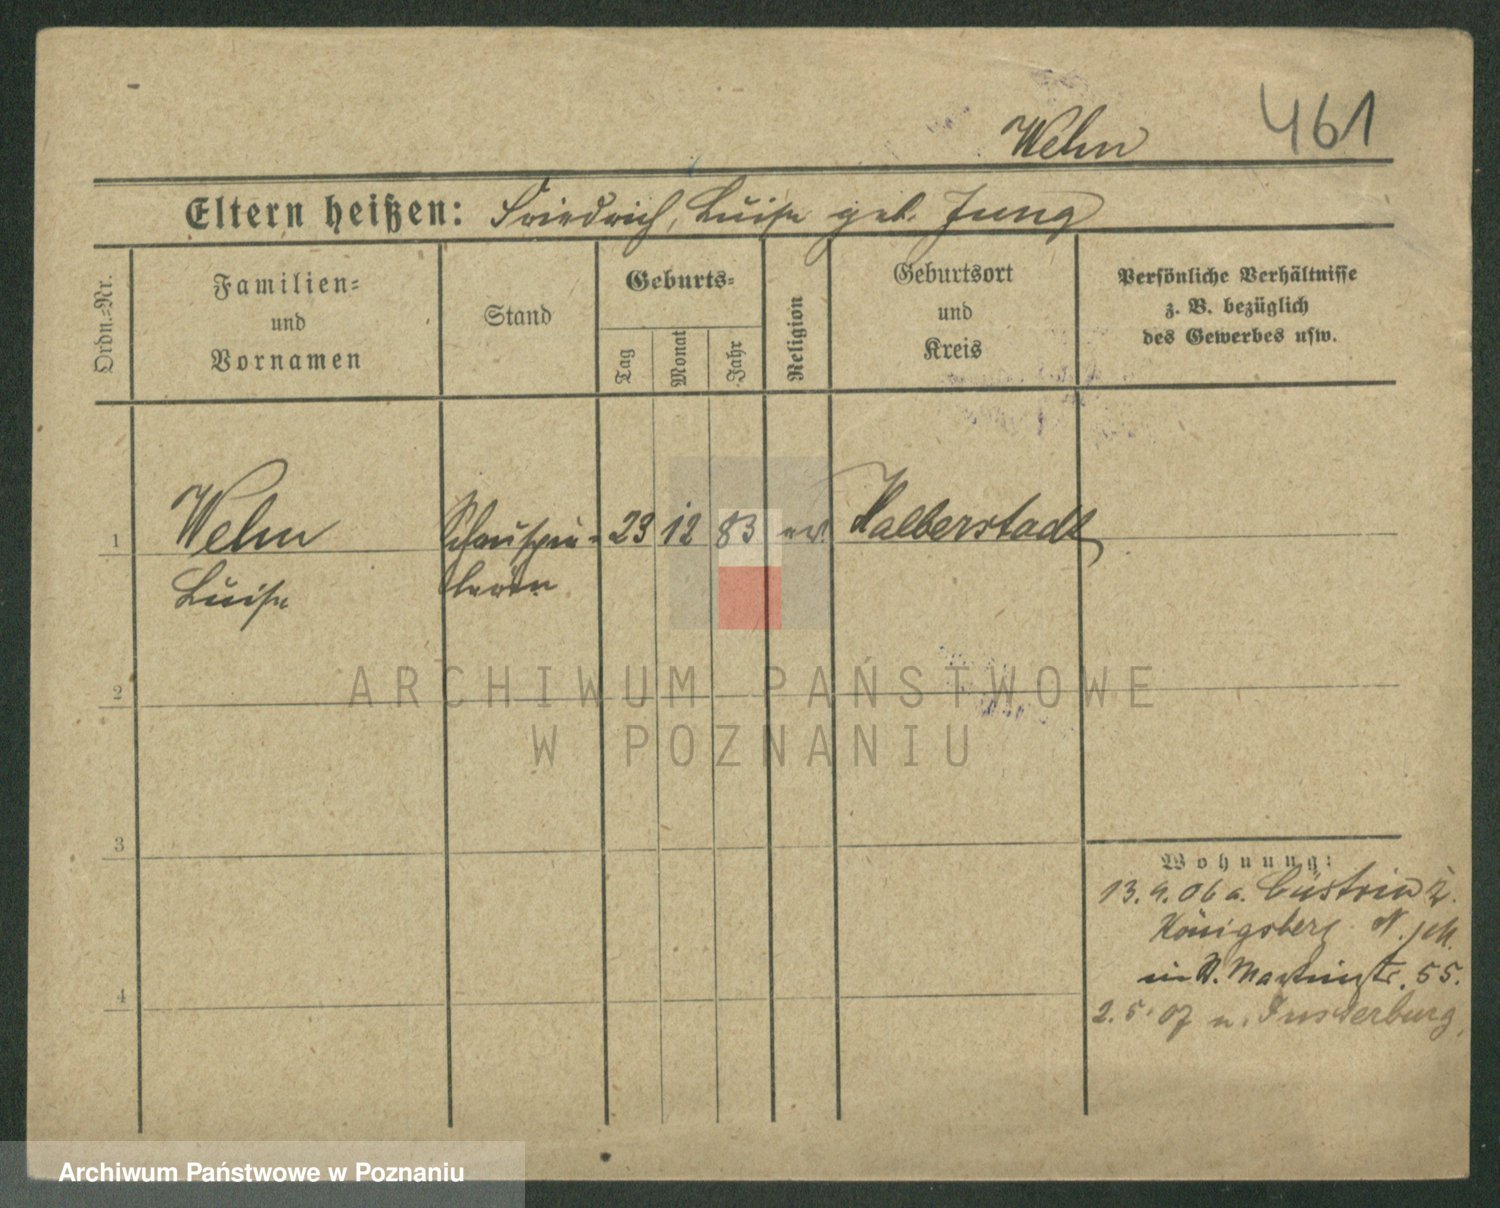 Wehn 461
Eltern heißen: Friedrich, Luise geb. Jung
Ordn.=Nr.
Familien=
und
Vornamen
Stand
Geburts=
Tag
Monat
Jahr
Religion
Geburtsort
und
Kreis
Persönliche Verhältnisse
z. B. bezüglich
des Gewerbes usw.
1 Wehn Schauspie= 23 12 83 ev. Halberstadt
Luise lerin
2
3
4
Wohnung:
13. 9. 06 a. Cüstrin
Königsberg N. /M.
Martinstr. 55.
2. 5. 07 n. Insterburg
ARCHIWUM PAŃSTWOWE
W POZNANIU
Archiwum Państwowe w Poznaniu